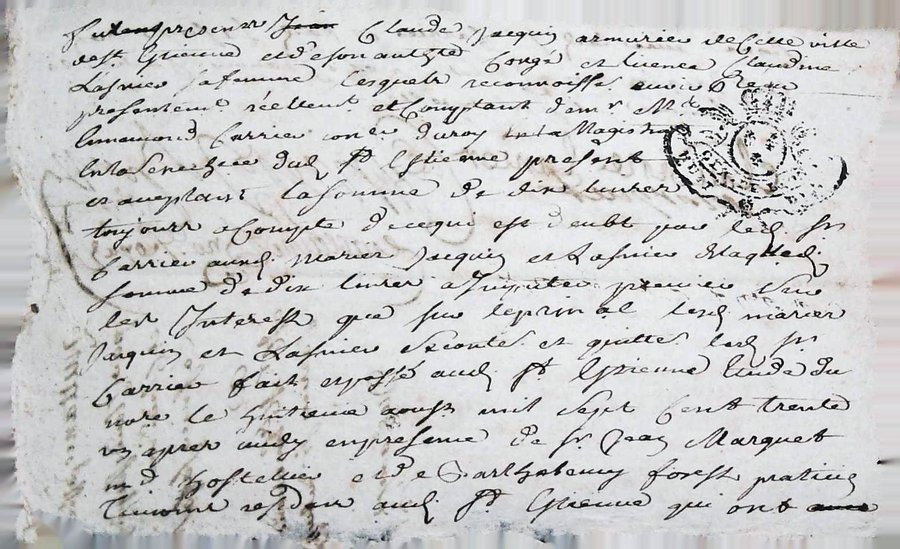 Furent presents Jean Claude Jacquin armurier de cette ville
de St Etienne et de son authté Congé et licence Claudine
Lasnier sa femme lesquels reconnoissent avoir receu
presentement réellemt et Comptant de mr. Me
Carrier coner du roy en la
en la Senechée dud. St Estienne present
et acceptant la somme de dix livres
toujours a Compte de ce qui est deubt par led. sr
Carrier aud. mariés Jacquin et Lasnier laquelle
somme de dix livres a imputer premier sur
les Interest que sur le prinal lesd. mariés
Jacquin et Lasnier contés et quittes led. sr
Carrier fait et passé aud. St Estienne etude du
nore le huitieme aoust mil sept Cent trente
un apres midy en presence de sr Jean Marquet
md hostellier et de Barthelemy forest praticien
temoins residens aud. St Estienne qui ont